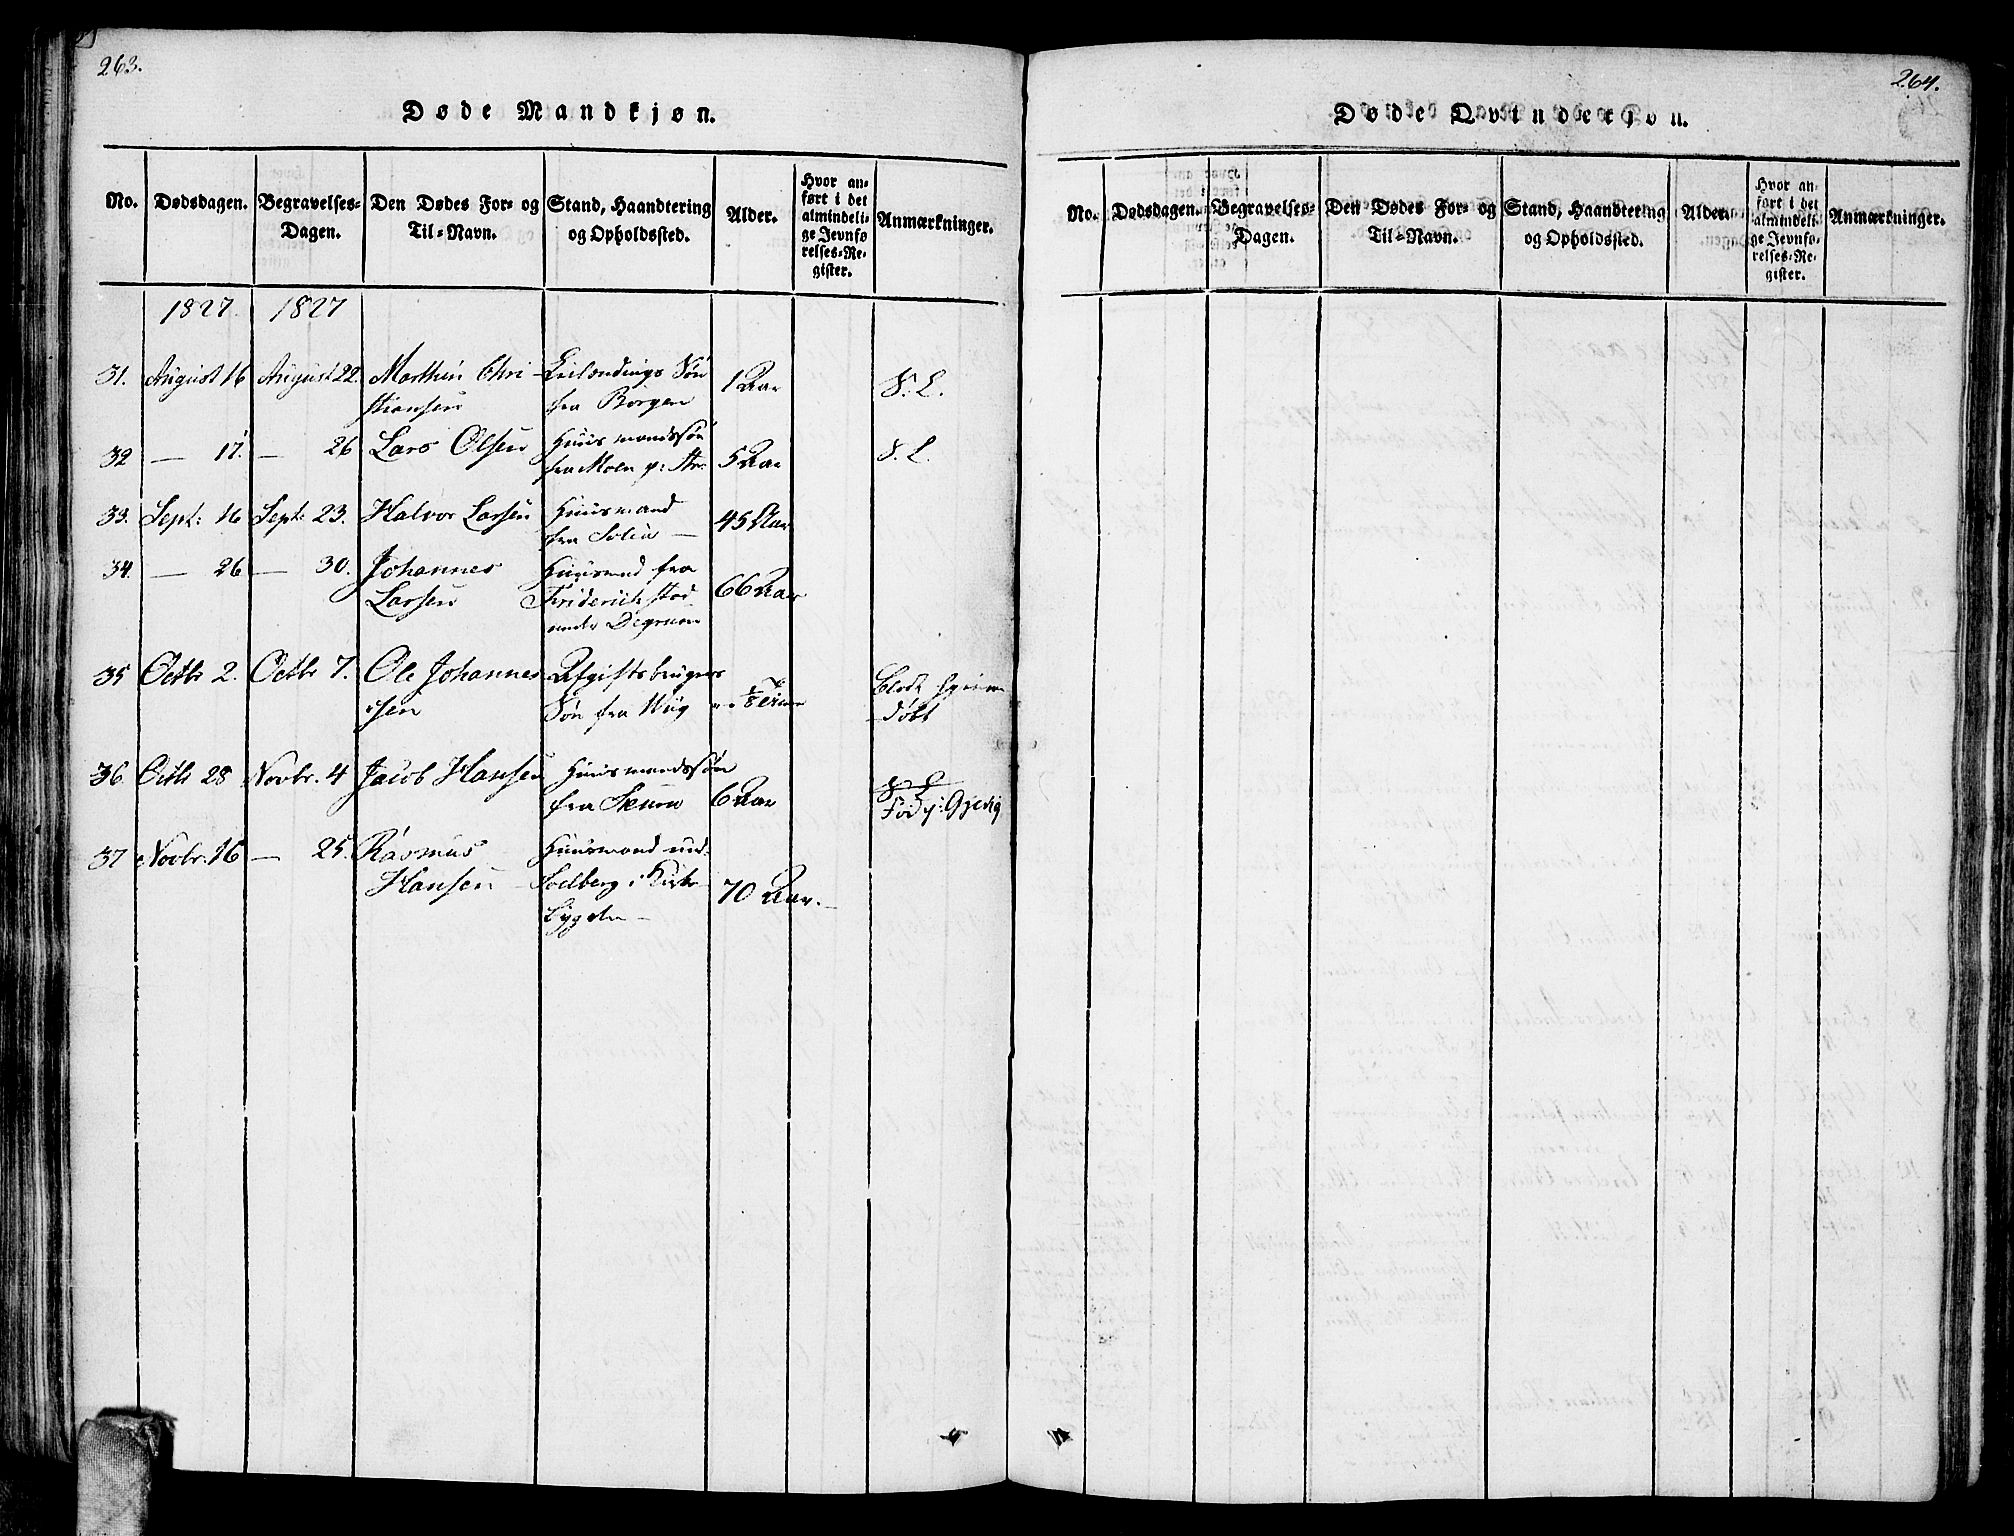 263.
Døde Mandkjøn.
No. Dødsdagen. Begravelses-Dagen. Den Dødes For- og Til-Navn. Stand, Haandtering og Opholdssted. Alder. Hvor anført i det almindelige Jevnførelses-Register. Anmærkninger.
1827. 1827
31. August 16 August 22. Marthin Chri- Leilændings Søn 1 Aar S. L.
stiansen fra Borgen
32 — 17. — 26 Lars Olsen Huusmandssøn 5 Aar S. L.
fra Moen
33. Sept: 16 Sept: 23. Halvor Larsen Huusmand 45 Aar
fra —
34. — 26 — 30. Johannes Huusmd fra 66 Aar
Larsen Friderichstad
under
35 Octbr 2. Octbr 7. Ole Johannes Afgiftsbrugers
sen Søn fra døbt
36 Octbr 28 Novbr. 4 Jacob Hansen Huusmandssøn 6 Aar S. L.
fra Fød
37 Novbr. 16 — 25. Rasmus Huusmand und.
Hansen — 70 Aar. —
Bygden —
264.
Døde Qvindekjøn.
No. Dødsdagen. Begravelses-Dagen. Den Dødes For- og Til-Navn. Stand, Haandtering og Opholdssted. Alder. Hvor anført i det almindelige Jevnførelses-Register. Anmærkninger.